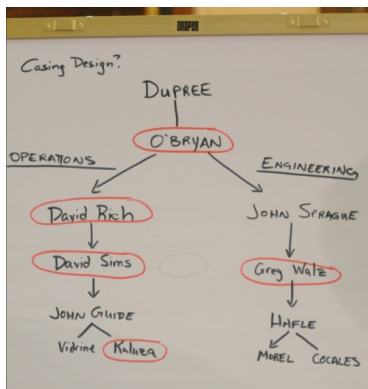 DRAPER
Casing Design?
DUPREE
O'BRYAN
OPERATIONS
ENGINEERING
David Rich
JOHN SPRAGUE
David Sims
Greg Walz
JOHN GUIDE
HAFLE
Vidrine Kaluza
MOREL COCALES